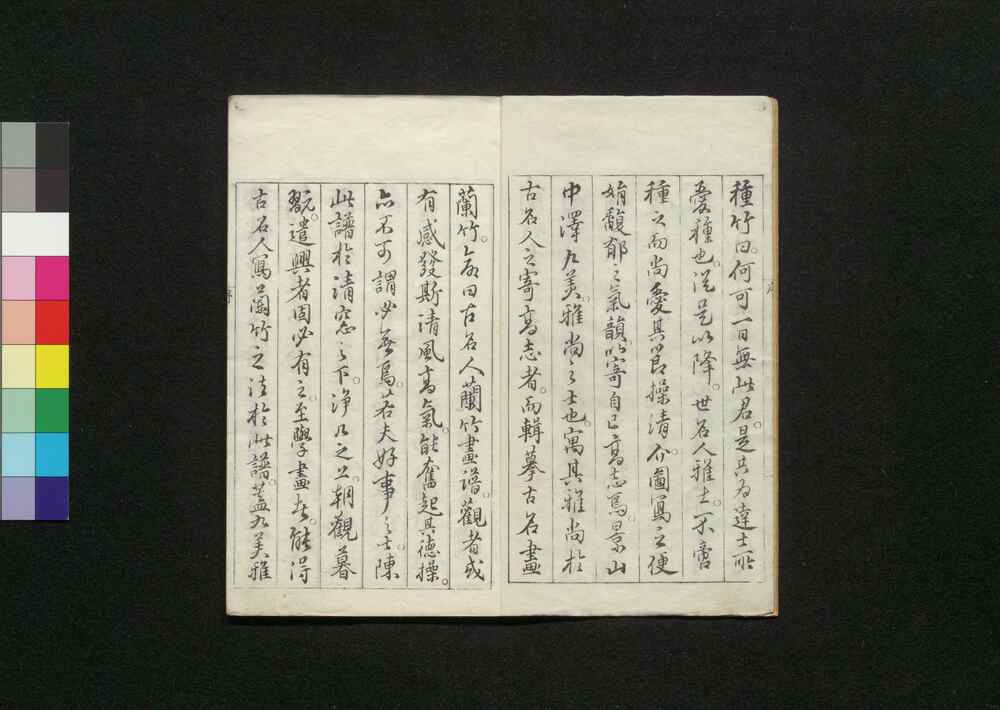 種竹曰。何可一日無此君。是其為達士所
愛種也。從是以降。世名人雅士。不啻
種之而尚愛其節操清介圖寫之便
娟馥郁之氣韻。以寄自已高志焉。景山
中澤九美。雅尚之士也。寓其雅尚於
古名人之寄高志者。而輯摹古名畫
蘭竹。命曰古名人蘭竹畫譜。觀者或
有感發斯清風高氣。能奮起其德操。
亦不可謂必無焉。若夫好事之士。陳
此譜於清窓之下。淨几之上。朝觀暮
翫。遣興者固必有之。至學畫者。能得
古名人寫蘭竹之法於此譜。蓋九美雅
序